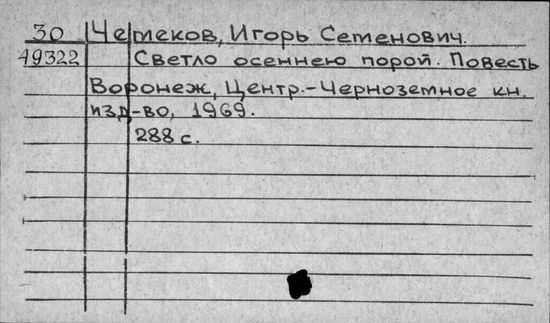 30 Чемеков, Игорь Семенович.
49322 Светло осеннею порой. Повесть
Воронеж, Центр.-Черноземное кн.
изд-во, 1969.
288 с.